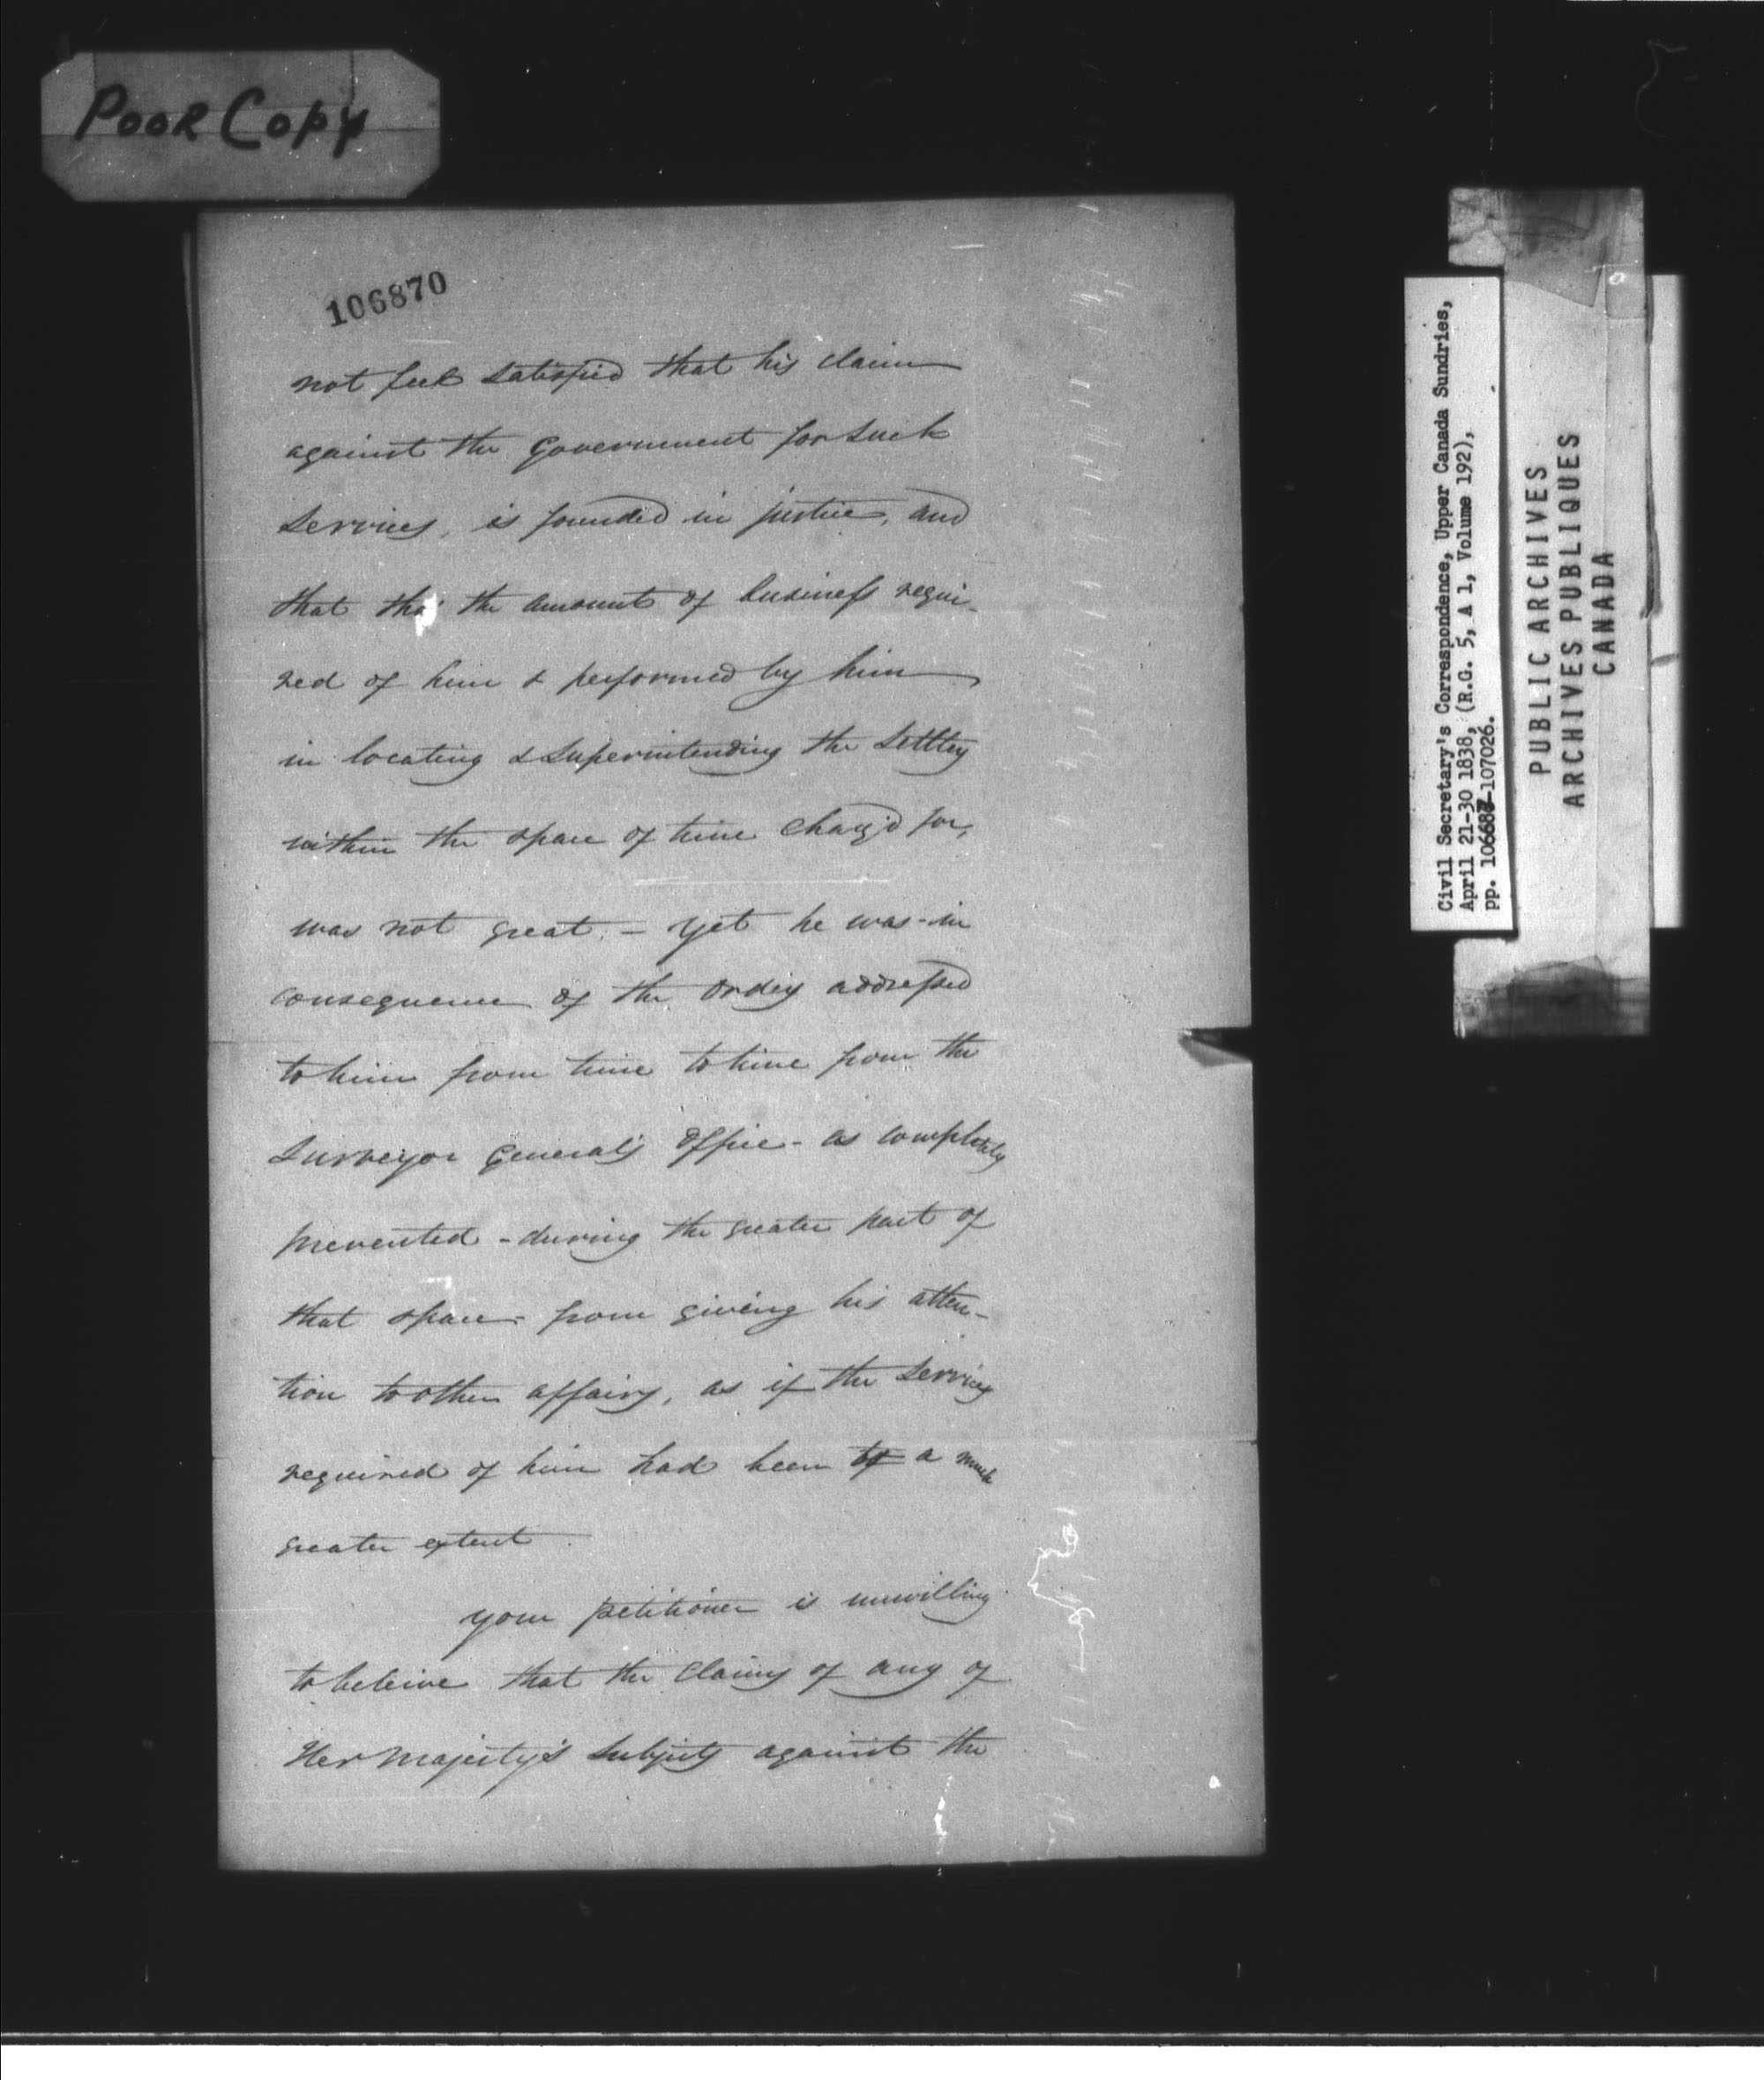 Poor Copy
106870
not feel satisfied that his claim
against the Government for such
services, is founded in justice, and
that tho' the amount of business requi-
red of him & performed by him
in locating & superintending the settlers
within the space of time charg'd for,
was not great. - yet he was - in
consequence of the orders addressed
to him from time to time from the
Surveyor General's Office - as completely
prevented - during the greater part of
that space - from giving his atten-
tion to other affairs, as if the services
required of him had been of a much
greater extent.
your petitioner is unwilling
to beleive that the claims of any of
Her Majesty's subjects against the
Civil Secretary's Correspondence, Upper Canada Sundries,
April 21-30 1838, (R.G. 5, A 1, Volume 192),
pp. 106687-107026.
PUBLIC ARCHIVES
ARCHIVES PUBLIQUES
CANADA